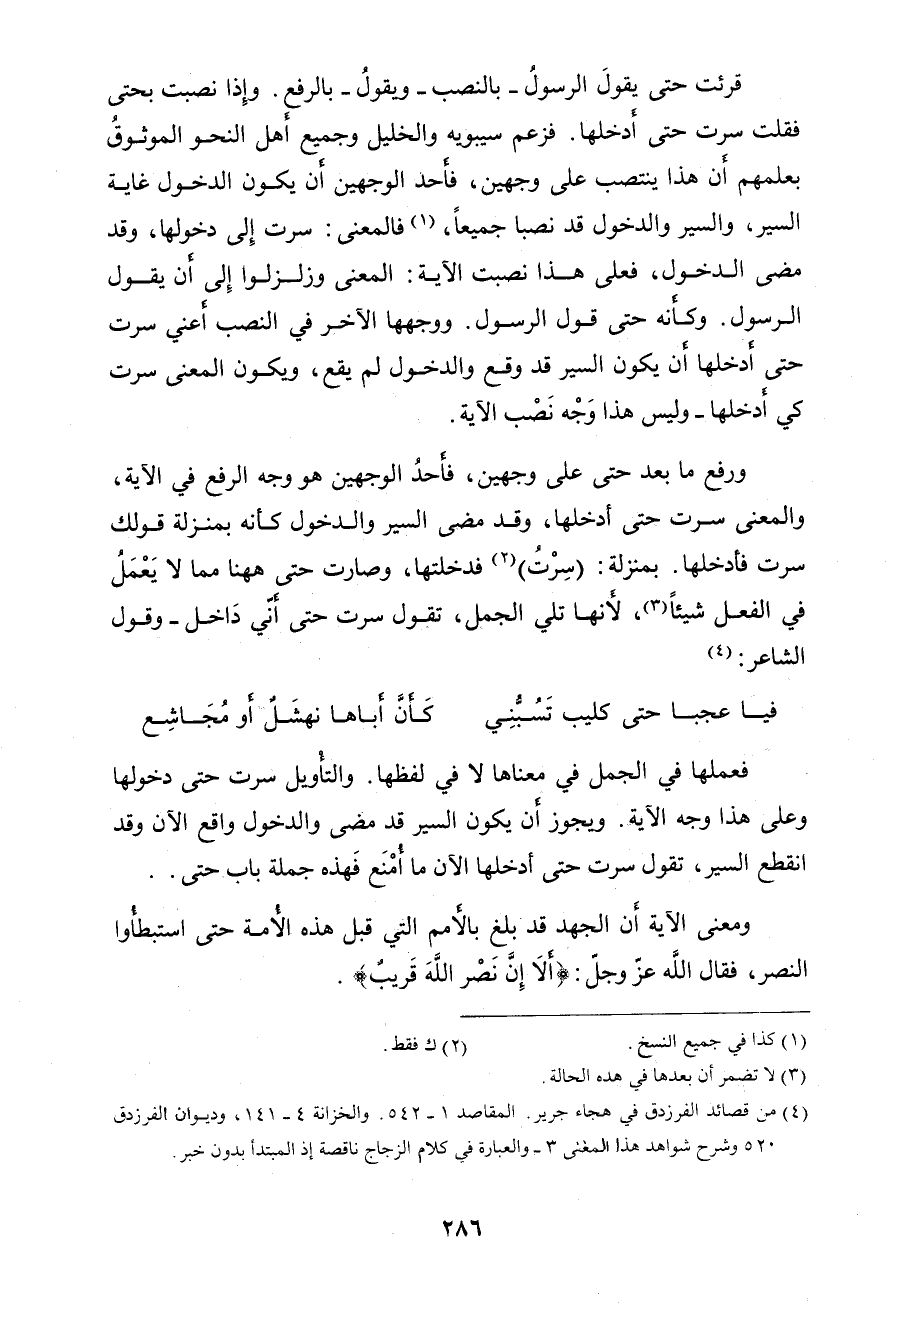 قرئت حتى يقولَ الرسولُ ـ بالنصب ـ ويقولُ ـ بالرفع . وإذا نصبت بحتى
فقلت سرت حتى أدخلها. فزعم سيبويه والخليل وجميع أهل النحو الموثوقُ
بعلمهم أن هذا ينتصب على وجهين، فأحد الوجهين أن يكون الدخول غاية
السير، والسير والدخول قد نصبا جميعاً، (١) فالمعنى: سرت إلى دخولها، وقد
مضى الدخول، فعلى هذا نصبت الآية: المعنى وزلزلوا إلى أن يقول
الرسول. وكأنه حتى قول الرسول. ووجهها الآخر في النصب أعني سرت
حتى أدخلها أن يكون السير قد وقع والدخول لم يقع، ويكون المعنى سرت
كي أدخلها ـ وليس هذا وَجْه نَصْب الآية.
ورفع ما بعد حتى على وجهين، فأحدُ الوجهين هو وجه الرفع في الآية،
والمعنى سرت حتى أدخلها، وقد مضى السير والدخول كأنه بمنزلة قولك
سرت فأدخلها. بمنزلة: (سِرْتُ)(٢) فدخلتها، وصارت حتى ههنا مما لا يَعْمَلُ
في الفعل شيئاً(٣)، لأنها تلي الجمل، تقول سرت حتى أنّي دَاخل ـ وقول
الشاعر: (٤)
فيا عجبا حتى كليب تَسُبُّنِي كَأنَّ أباها نهشَلٌ أو مُجَاشِع
فعملها في الجمل في معناها لا في لفظها. والتأويل سرت حتى دخولها
وعلى هذا وجه الآية. ويجوز أن يكون السير قد مضى والدخول واقع الآن وقد
انقطع السير، تقول سرت حتى أدخلها الآن ما أُمْنَع فَهذه جملة باب حتى. .
ومعنى الآية أن الجهد قد بلغ بالأمم التي قبل هذه الأمة حتى استبطأوا
النصر، فقال اللَّه عزّ وجلّ: ﴿أَلَا إِنَّ نَصْر اللَّهَ قَرِيبٌ﴾ .
(١) كذا في جميع النسخ. (٢) ك فقط.
(٣) لا تضمر أن بعدها في هذه الحالة.
(٤) من قصائد الفرزدق في هجاء جرير. المقاصد ١ ـ ٥٤٢. والخزانة ٤ ـ ١٤١، وديوان الفرزدق
٥٢٠ وشرح شواهد هذا المغنى ٣ ـ والعبارة في كلام الزجاج ناقصة إذ المبتدأ بدون خبر.
٢٨٦